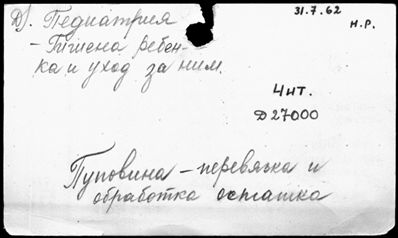 Д). Педиатрия
31.7.62
Н.Р.
– Гигиена ребен-
ка и уход за ним.
Чит.
Д27000
Пуповина – перевязка и
обработка остатка